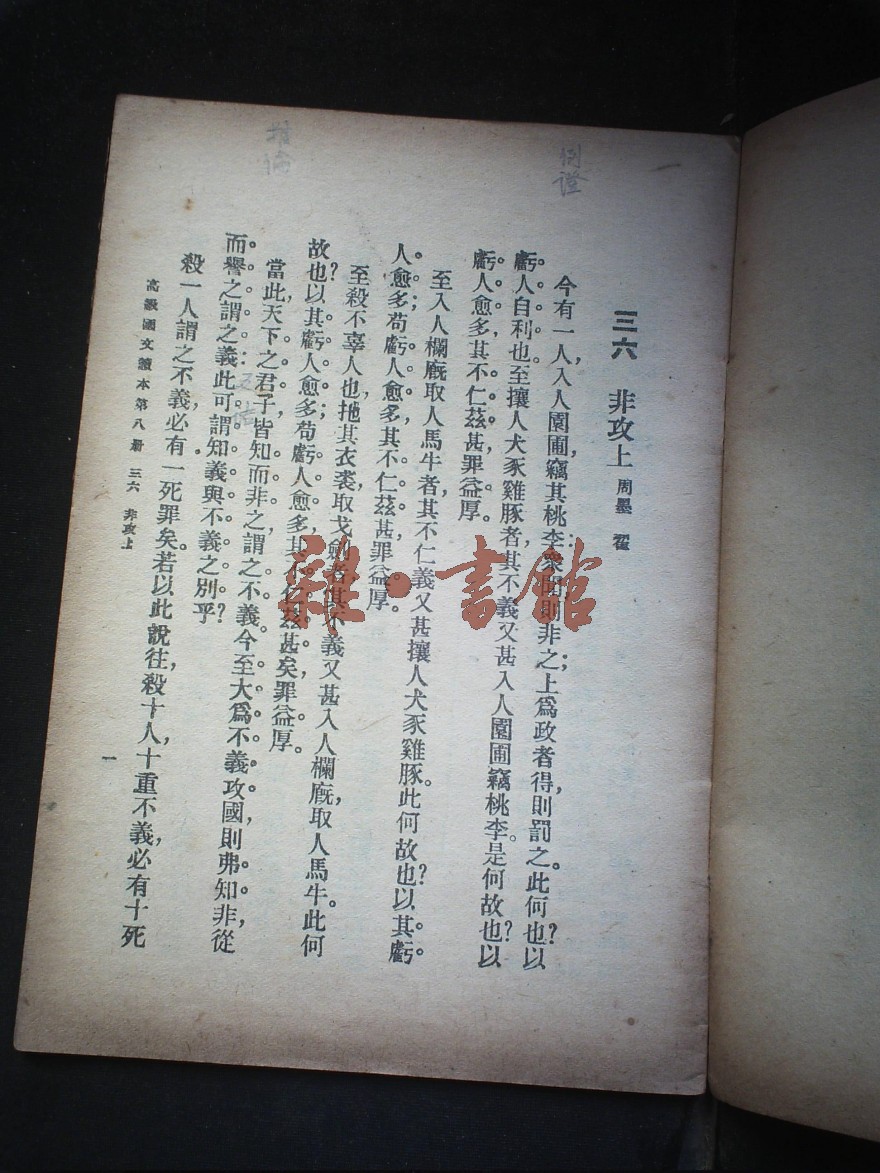 三六　非攻上　周墨　翟
今有一人，入人園圃，竊其桃李；衆聞則非之；上爲政者得，則罰之。此何也？以
虧人自利也。至攘人犬豕雞豚者，其不義又甚入人園圃竊桃李。是何故也？以
虧人愈多，其不仁茲甚，罪益厚。
至入人欄廐取人馬牛者，其不仁義又甚攘人犬豕雞豚。此何故也？以其虧
人愈多；苟虧人愈多，其不仁茲甚，罪益厚。
至殺不辜人也，扡其衣裘，取戈劍者，其不義又甚入人欄廐，取人馬牛。此何
故也？以其虧人愈多；苟虧人愈多，其不仁茲甚矣，罪益厚。
當此，天下之君子，皆知而非之，謂之不義。今至大爲不義攻國，則弗知非，從
而譽之，謂之義：此可謂知義與不義之別乎？
殺一人，謂之不義，必有一死罪矣。若以此說往，殺十人，十重不義，必有十死
高級國文讀本第八册　三六　非攻上
一
例證
雜·書館